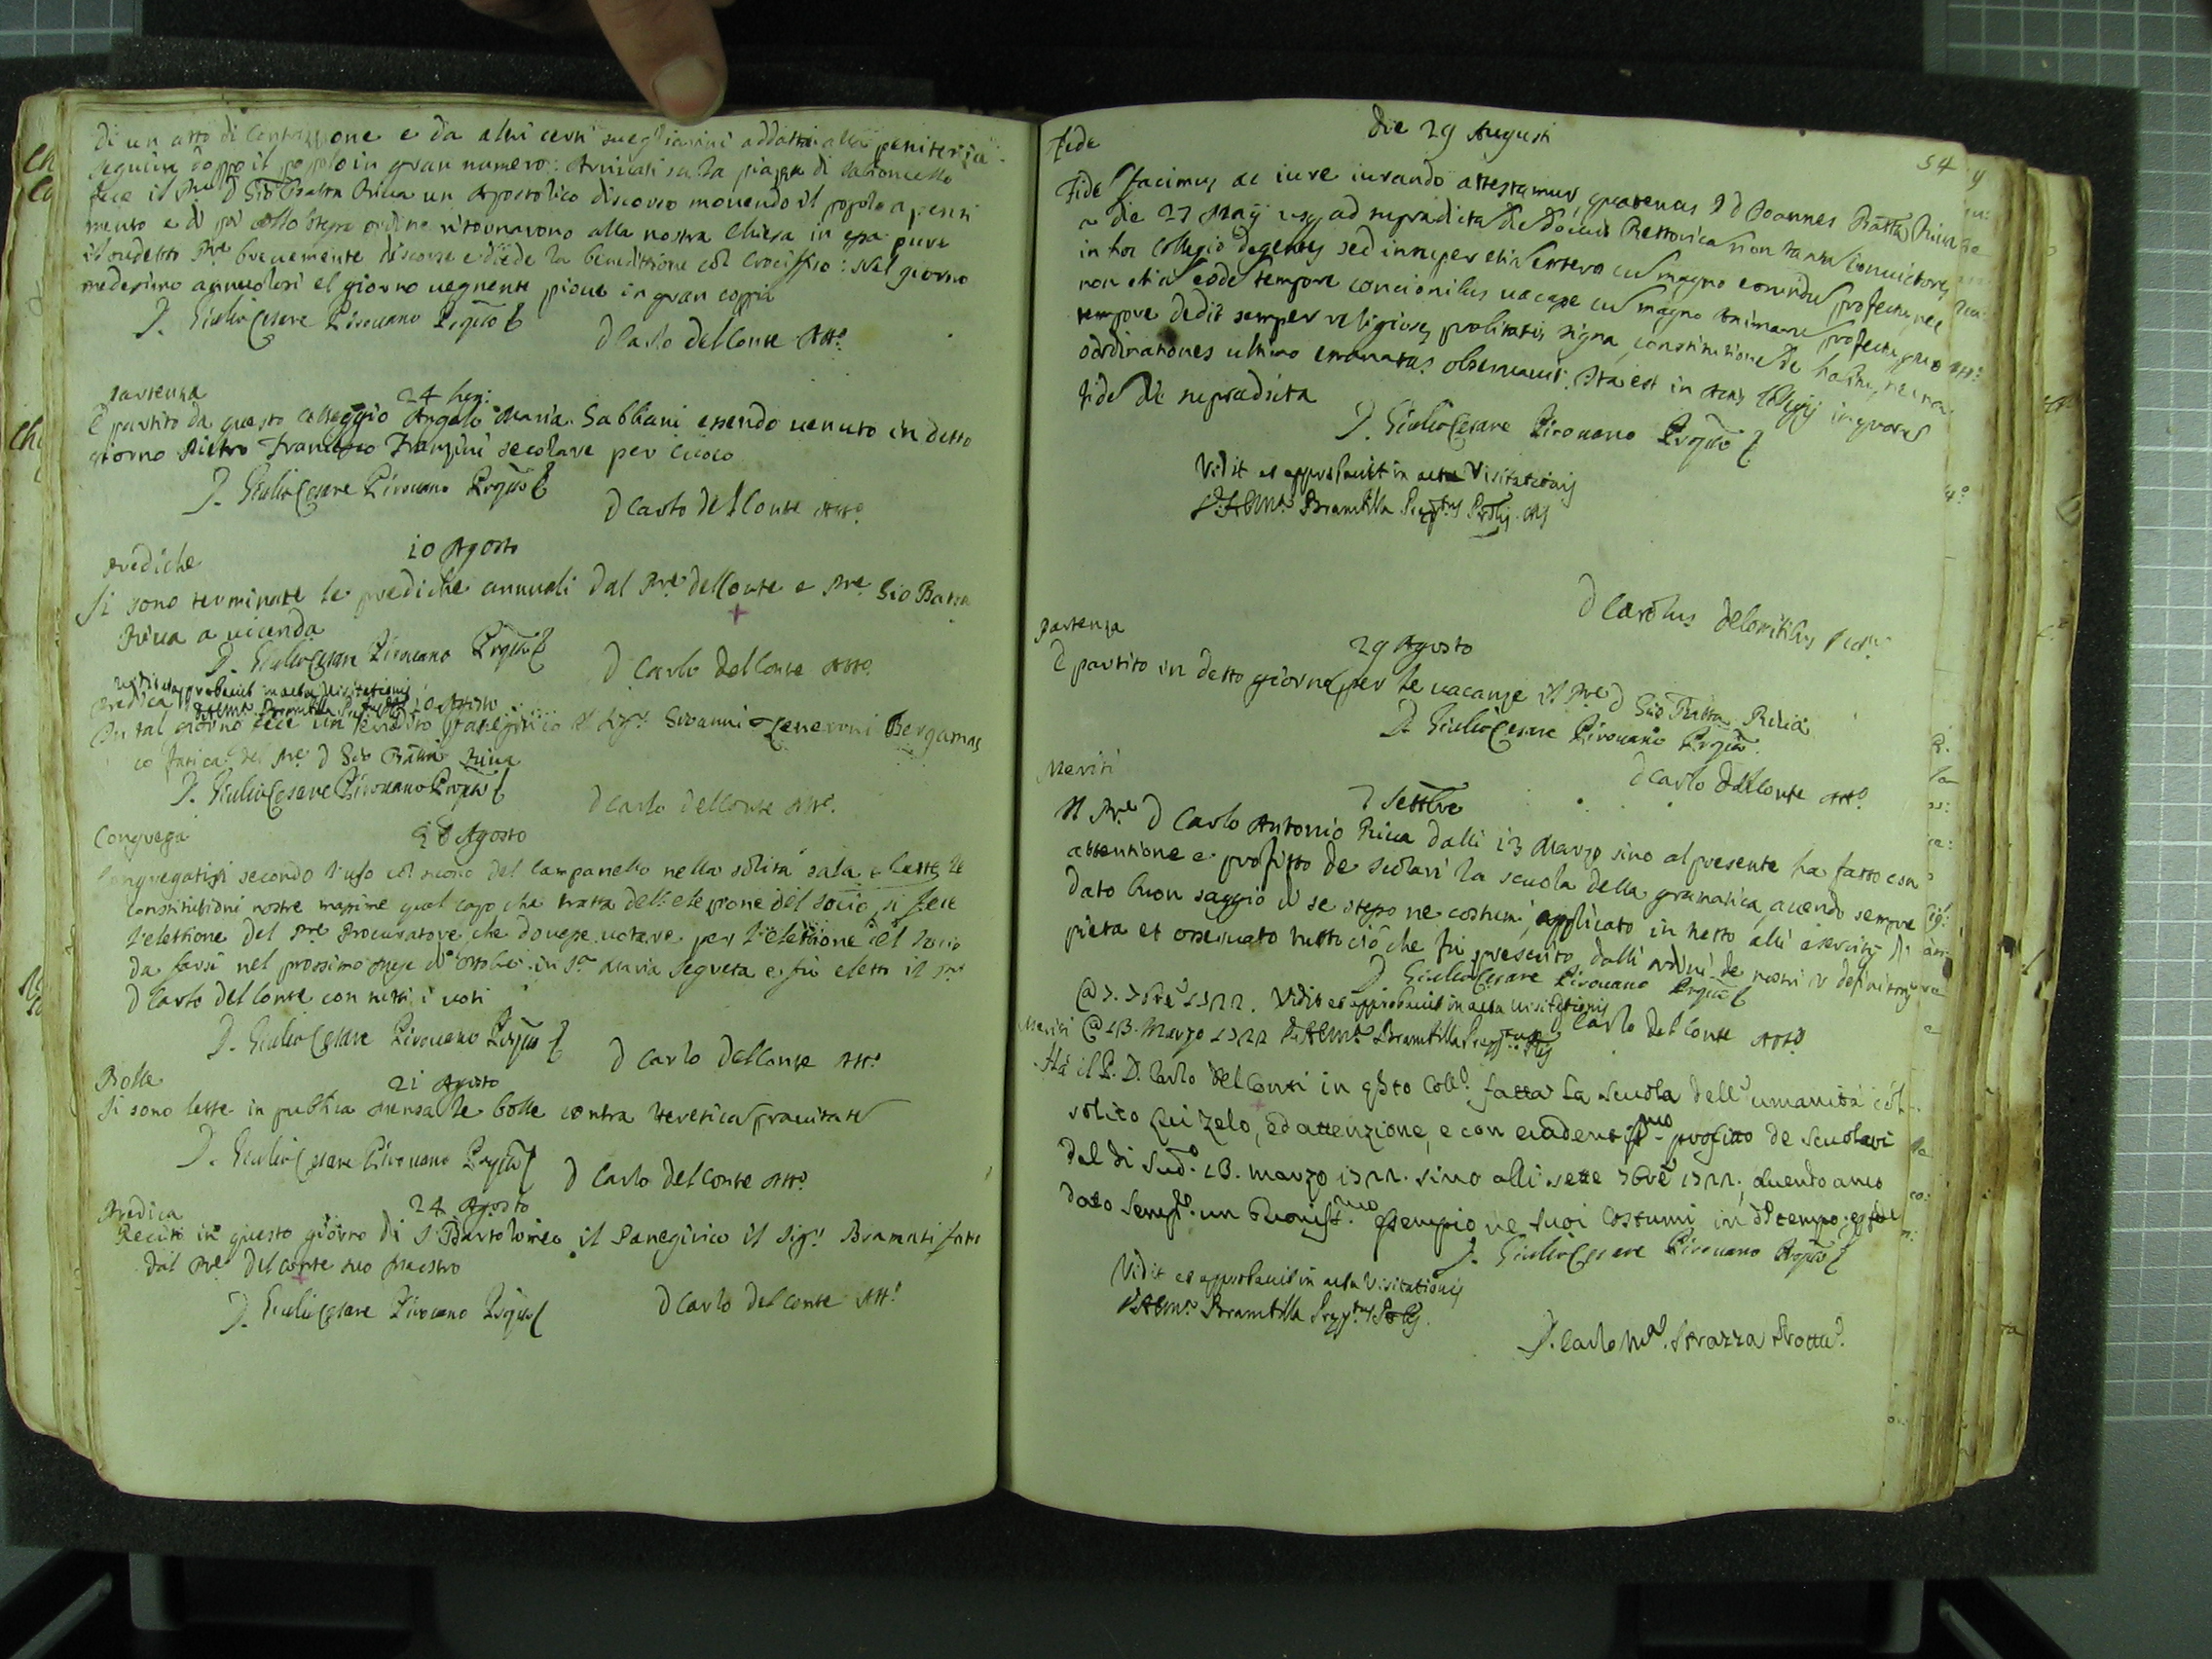 di un atto di Contrizione e da altri certi suegliarini addatti alla penitenza
seguiva doppo il popolo in gran numero: Arrivati su la piazza di
fece il Pre D Gio Batta Riva un Apostolico discorso mouendo il popolo a penti
mento e di poi collo stesso ordine ritornarono alla nostra Chiesa in essa pure
il sudetto Pre breuemente discorse e diede la benedittione col Crocifisso: Nel giorno
medesimo annuolosi el giorno uegnente pioue in gran coppia
D. Giulio Cesare Pirouano
D Carlo del Conte Atto.
Partenza
24
È partito da questo colleggio Angelo Maria Sabbani essendo uenuto in detto
giorno Pietro Francesco Franzini secolare per Cuoco
D. Giulio Cesare Pirouano
D Carlo del Conte Atto.
Prediche
10 Agosto
Si sono terminate le prediche annuali dal Pre del Conte e Pre Gio Batta
Riua a uicenda
D. Giulio Cesare Pirouano
D Carlo del Conte Atto.
Vidit et approbauit in actu Visitationis
Predica
Brambilla
10 Agosto
In tal giorno fece un panegirico il Sigr Giouanni Zeneroni Bergamas
co fatica del Pre D Gio Batta Riua
D. Giulio Cesare Pirouano
D Carlo del Conte Atto.
Congrega
Agosto
Congregatisi secondo l'uso col suono del Campanello nella solita sala e lette le
Constitutioni nostre massime quel capo che tratta dell'elezione del socio, si fece
l'elettione del Pre Procuratore che douesse uotare per l'elettione del Socio
da farsi nel prossimo mese d'Ottobre in Sta Maria Segreta e fù eletto il Pre
D Carlo del Conte con tutti i uoti
D. Giulio Cesare Pirouano
D Carlo del Conte Atto.
Bolle
21 Agosto
Si sono lette in publica mensa le bolle contra heretica prauitate
D. Giulio Cesare Pirouano
D Carlo del Conte Atto.
Predica
24 Agosto
Recitò in questo giorno di S Bartolomeo il Panegirico il Sigr Bramati fatto
dal Pre del Conte suo Maestro
D. Giulio Cesare Pirouano
D Carlo del Conte Atto.
54
Fede
Die 29 Augusti
Fide facimus ac iure iurando attestamur, quatenus P D Joannes Batta Riua
a die 27 Maij usq ad supradicta die docuit Rettorica non tantu conuictores
in hoc Collegio degentes sed insuper etia exteros cu magno eorundu profectu, nec
non etia eode tempore concionibus uacasse cu magno Animaru profectu, quo
tempore dedit semper religiosae probitatis signa,
ordinationes ultimo emanatas obseruauit. Ita est in Actis Collegij in quorum
fide die supradicta
D. Giulio Cesare Pirouano
Vidit et approbauit in actu Visitationis
Brambilla
D Carolus
Partenza
29 Agosto
È partito in detto giorno per le uacanze il Pre D Gio Batta Riua
D. Giulio Cesare Pirouano
D Carlo del Conte Atto.
Meriti
7 Settbre
Il Pre D Carlo Antonio Riua dalli 13 Marzo sino al presente ha fatto con
attentione e profitto de scolari la scuola della gramatica, auendo sempre
dato buon saggio di se stesso ne costumi, applicato in tutto alli esercitij di
pietà et osseruato tutto ciò che fù prescritto dalli ordini de nostri definitorij
D. Giulio Cesare Pirouano
@ 7. 7bre 1722. Vidit et approbauit in actu Visitationis
Carlo del Conte Atto.
Meriti @ 13. Marzo 1722 Brambilla
Hà il P. D. Carlo del Conti in qsto Collo. fatta la scuola dell'umanità col
solito zelo, ed attenzione, e con profitto de Scuolari
dal di Sudo. 13. marzo 1722. sino alli sette 7bre 1722; auendo anco
dato Sempre un Buonissmo esempio ne suoi Costumi in do tempo
D. Giulio Cesare Pirouano
Vidit et approbauit in actu Visitationis
Brambilla
D. Carlo Ma. Strazza